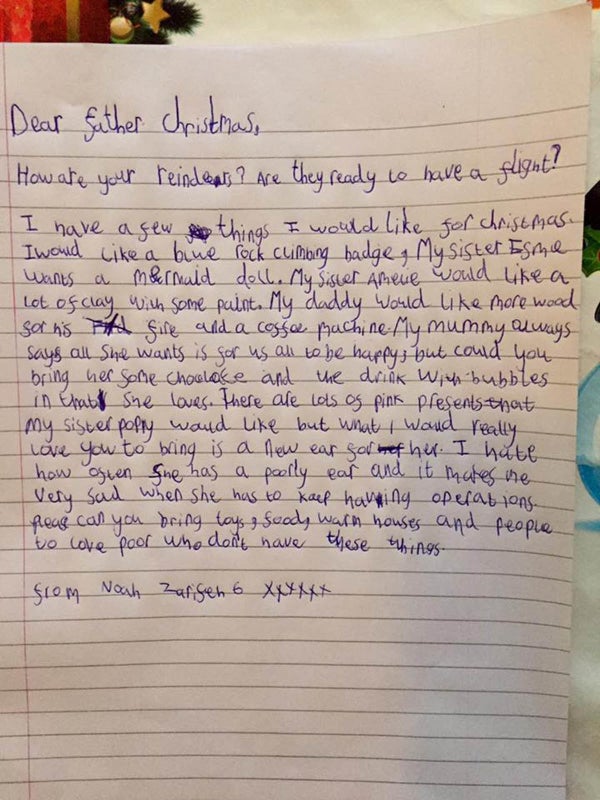 Dear father christmas,
How are your reindeers? Are they ready to have a flight?
I have a few things I would like for christmas.
I would like a blue rock climbing badge, My sister Esmie
wants a mermaid doll. My sister Amelie would like a
lot of clay with some paint. My daddy would like more wood
for his fire and a coffee machine. My mummy always
says all she wants is for us all to be happy, but could you
bring her some choclate and the drink with bubbles
in that she loves. There are lots of pink presents that
my sister poppy would like but what I would really
love you to bring is a new ear for her. I hate
how often she has a poorly ear and it makes me
very sad when she has to keep having operations.
pleas can you bring toys, food, warm houses and people
to love poor who don't have these things.
from Noah 6 xxxxxx